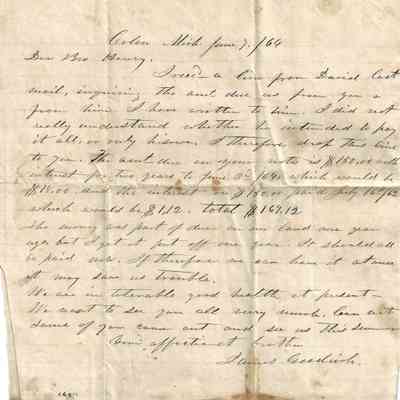 Colon Mich June 7. /64
Dear Bro. Henry.
I recd a line from David last
mail, inquiring the amt due us from you &
from him I have written to him. I did not
really understand whether he intended to pay
it all, or only his own. I therefore drop this line
to you. The amt due on your note is $150.00 with
interest for two years to June 3rd /64, which would be
and the interest on $ paid July 16 /62
which would be $1.12. total $169.12
The money was part of due on our land one year
ago but I got it put off one year. It should all
be paid now. If therefore we can have it at once
it may save us trouble.
We are in tolerable good health at present—
We want to see you all very much. Can not
some of you come out and see us this summer
Your affectionate brother
James Goodrich.